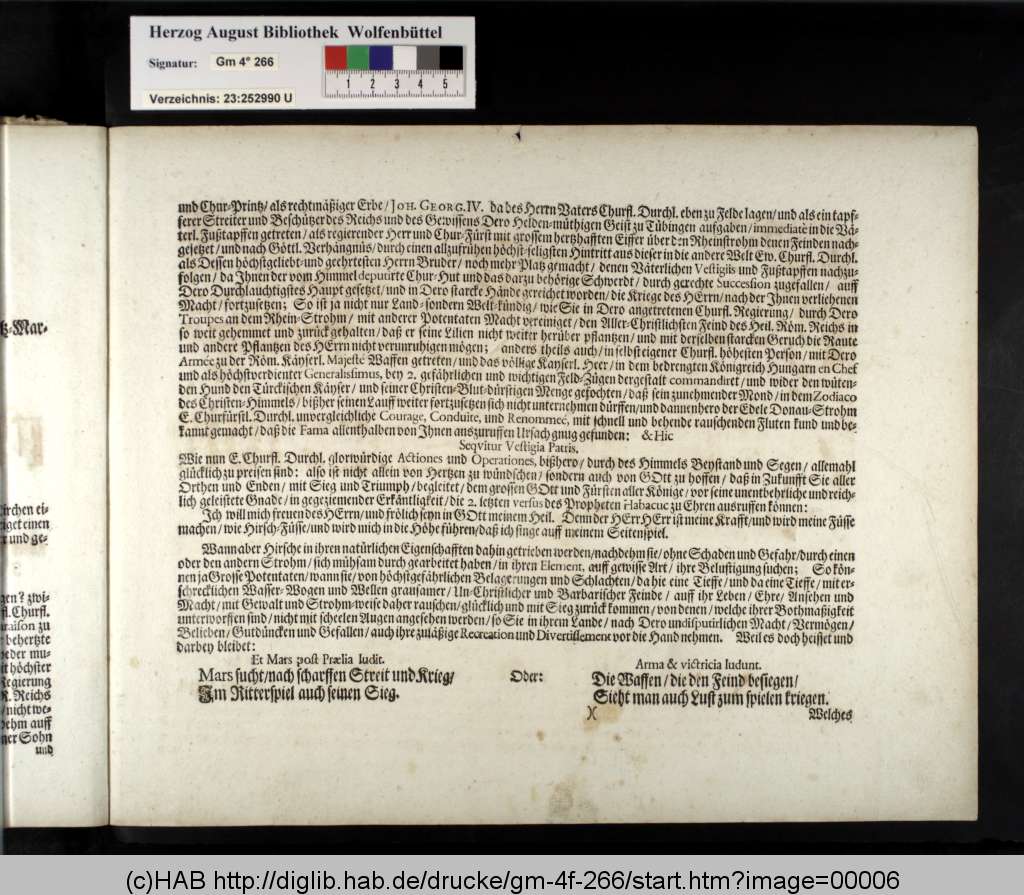 Herzog August Bibliothek Wolfenbüttel
Signatur: Gm 4° 266
1 2 3 4 5
Verzeichnis: 23:252990 U
und Chur-Printz/ als rechtmäßiger Erbe/ JOH. GEORG. IV. da des Herrn Vaters Churfl. Durchl. eben zu Felde lagen/ und als ein tapf-
ferer Streiter und Beschützer des Reichs und des Gewissens Dero Helden-müthigen Geist zu Tübingen aufgaben/ immediatè in die Vä-
terl. Fußtapffen getreten/ als regierender Herr und Chur-Fürst mit grossem hertzhafften Eiffer über den Rheinstrohm denen Feinden nach-
gesetzet/ und nach Göttl. Verhängnüs/ durch einen allzufrühen höchst-seligsten Hintritt aus dieser in die andere Welt Ew. Churfl. Durchl.
als Dessen höchstgeliebt- und geehrtesten Herrn Bruder/ noch mehr Platz gemacht/ denen Väterlichen Vestigiis und Fußtapffen nachzu-
folgen/ da Ihnen der vom Himmel deputirte Chur-Hut und das darzu behörige Schwerdt/ durch gerechte Succession zugefallen/ auff
Dero Durchlauchtigstes Haupt gesetzet/ und in Dero starcke Hände gereichet worden/ die Kriege des HErrn/ nach der Ihnen verliehenen
Macht/ fortzusetzen; So ist ja nicht nur Land- sondern Welt-kündig/ wie Sie in Dero angetretenen Churfl. Regierung/ durch Dero
Troupes an dem Rhein-Strohm/ mit anderer Potentaten Macht vereiniget/ den Aller-Christlichsten Feind des Heil. Röm. Reichs in
so weit gehemmet und zurück gehalten/ daß er seine Lilien nicht weiter herüber pflantzen/ und mit derselben starcken Geruch die Raute
und andere Pflantzen des HErrn nicht verunruhigen mögen; anders theils auch/ in selbsteigener Churfl. höhesten Person/ mit Dero
Armée zu der Röm. Käyserl. Majestè Waffen getreten/ und das völlige Kayserl. Heer/ in dem bedrengten Königreich Hungarn en Chef
und als höchstverdienter Generalissimus, bey 2. gefährlichen und wichtigen Feld-Zügen dergestalt commandiret/ und wider den wüten-
den Hund den Türckischen Käyser/ und seiner Christen-Blut-dürstigen Menge gefochten/ daß sein zunehmender Mond/ in dem Zodiaco
des Christen-Himmels/ bißher seinen Lauff weiter fortzusetzen sich nicht unternehmen dürffen/ und dannenhero der Edele Donau-Strohm
E. Churfürstl. Durchl. unvergleichliche Courage, Conduite, und Renommeé, mit schnell und behende rauschenden Fluten kund und be-
kannt gemacht/ daß die Fama allenthalben von Ihnen auszuruffen Ursach gnug gefunden: & Hic
Seqvitur Vestigia Patris.
Wie nun E. Churfl. Durchl. glorwürdige Actiones und Operationes, bißhero/ durch des Himmels Beystand und Segen/ allemahl
glücklich zu preisen sind: also ist nicht allein von Hertzen zu wündschen/ sondern auch von GOtt zu hoffen/ daß in Zukunfft Sie aller
Orthen und Enden/ mit Sieg und Triumph/ begleitet/ dem grossen GOtt und Fürsten aller Könige/ vor seine unentbehrliche und reich-
lich geleistete Gnade/ in geziemender Erkäntligkeit/ die 2. letzten versus des Propheten Habacuc zu Ehren ausruffen können:
Ich will mich freuen des HErrn/ und frölich seyn in GOtt meinem Heil. Denn der HErr HErr ist meine Krafft/ und wird meine Füsse
machen/ wie Hirsch-Füsse/ und wird mich in die Höhe führen/ daß ich singe auff meinem Seitenspiel.
Wann aber Hirsche in ihren natürlichen Eigenschafften dahin getrieben werden/ nachdehm sie/ ohne Schaden und Gefahr/ durch einen
oder den andern Strohm/ sich mühsam durch gearbeitet haben/ in ihren Element, auff gewisse Art/ ihre Belustigung suchen; So kön-
nen ja Grosse Potentaten/ wann sie/ von höchstgefährlichen Belagerungen und Schlachten/ da hie eine Tieffe/ und da eine Tieffe/ mit er-
schrecklichen Wasser-Wogen und Wellen grausamer/ Un-Christlicher und Barbarischer Feinde/ auff ihr Leben/ Ehre/ Ansehen und
Macht/ mit Gewalt und Strohm-weise daher rauschen/ glücklich und mit Sieg zurück kommen/ von denen/ welche ihrer Bothmäßigkeit
unterworffen sind/ nicht mit scheelen Augen angesehen werden/ so Sie in ihrem Lande/ nach Dero undisputirlichen Macht/ Vermögen/
Belieben/ Gutdüncken und Gefallen/ auch ihre zuläßige Recreation und Divertissement vor die Hand nehmen. Weil es doch heisset und
darbey bleibet:
Et Mars post Prælia ludit.
Mars sucht/ nach scharffen Streit und Krieg/
Im Ritterspiel auch seinen Sieg.
Oder:
Arma & victricia ludunt.
Die Waffen/ die den Feind besiegen/
Sieht man auch Lust zum spielen kriegen.
)( Welches
tz-Mar-
irchen ei-
iget einen
r und ge-
gen? zwi-
fl. Churfl.
raison zu
r behertzte
eder mu-
it höchster
Regierung
R. Reichs
/ nicht we-
ehm auff
ner Sohn
und
(c)HAB http://diglib.hab.de/drucke/gm-4f-266/start.htm?image=00006